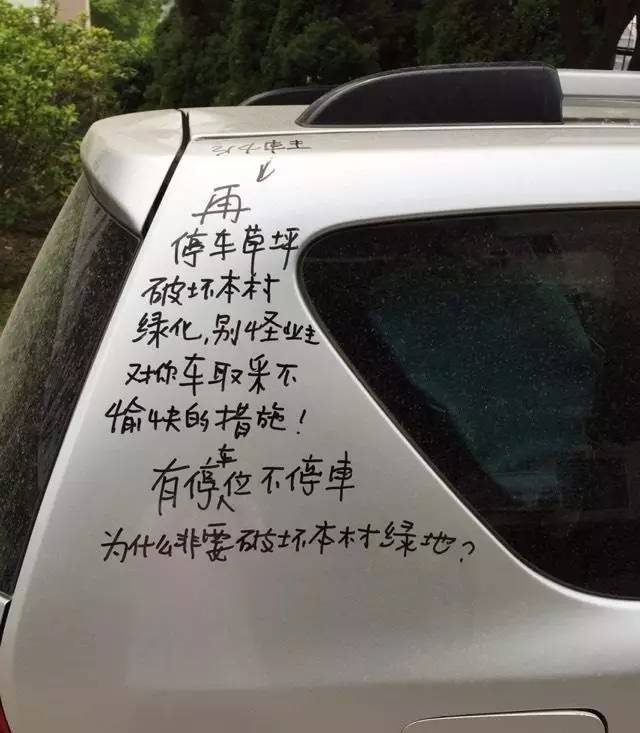 再
停车草坪
破坏本村
绿化,别怪业主
对你车取采不
愉快的措施!
有停车位不停車
为什么非要破坏本村绿地?